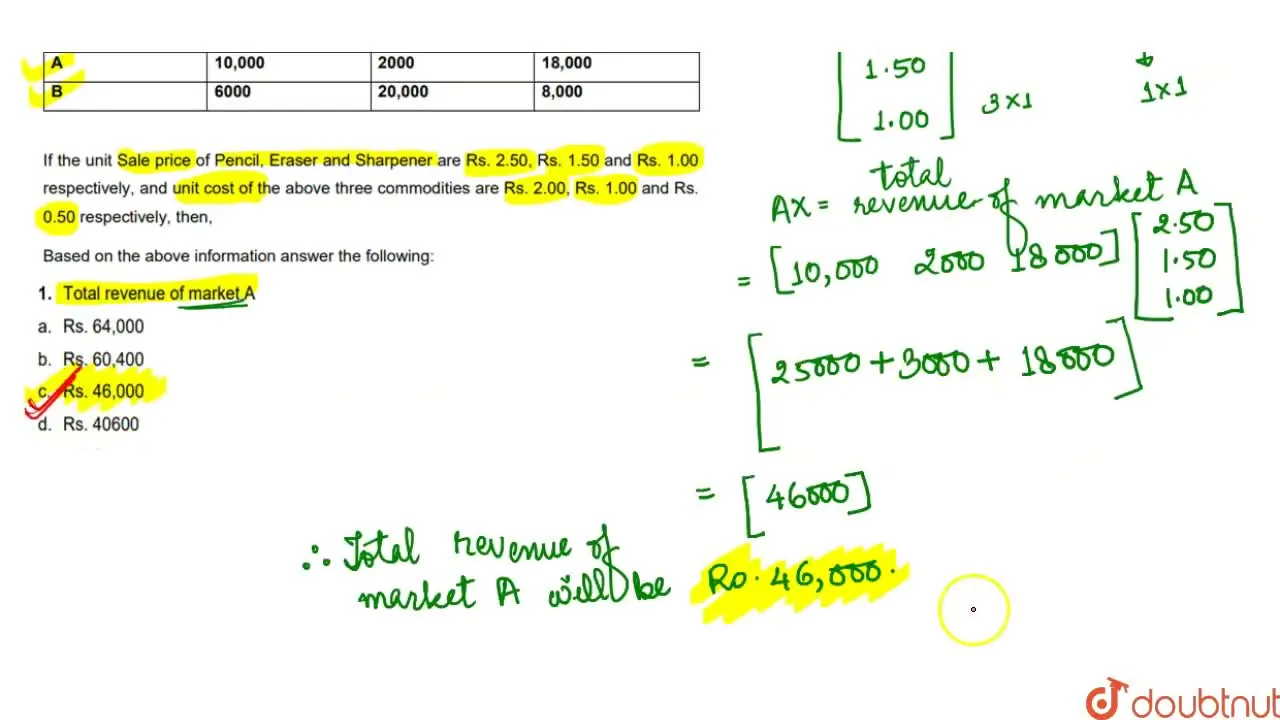 A 10,000 2000 18,000
B 6000 20,000 8,000
If the unit Sale price of Pencil, Eraser and Sharpener are Rs. 2.50, Rs. 1.50 and Rs. 1.00
respectively, and unit cost of the above three commodities are Rs. 2.00, Rs. 1.00 and Rs.
0.50 respectively, then,
Based on the above information answer the following:
1. Total revenue of market A
a. Rs. 64,000
b. Rs. 60,400
c. Rs. 46,000
d. Rs. 40600
1.50
1.00
3×1
1×1
total
AX = revenue of market A
= [10,000 2000 18000] [2.50
1.50
1.00]
= [25000 + 3000 + 18000]
= [46000]
∴ Total revenue of
market A will be Rs. 46,000.
doubtnut